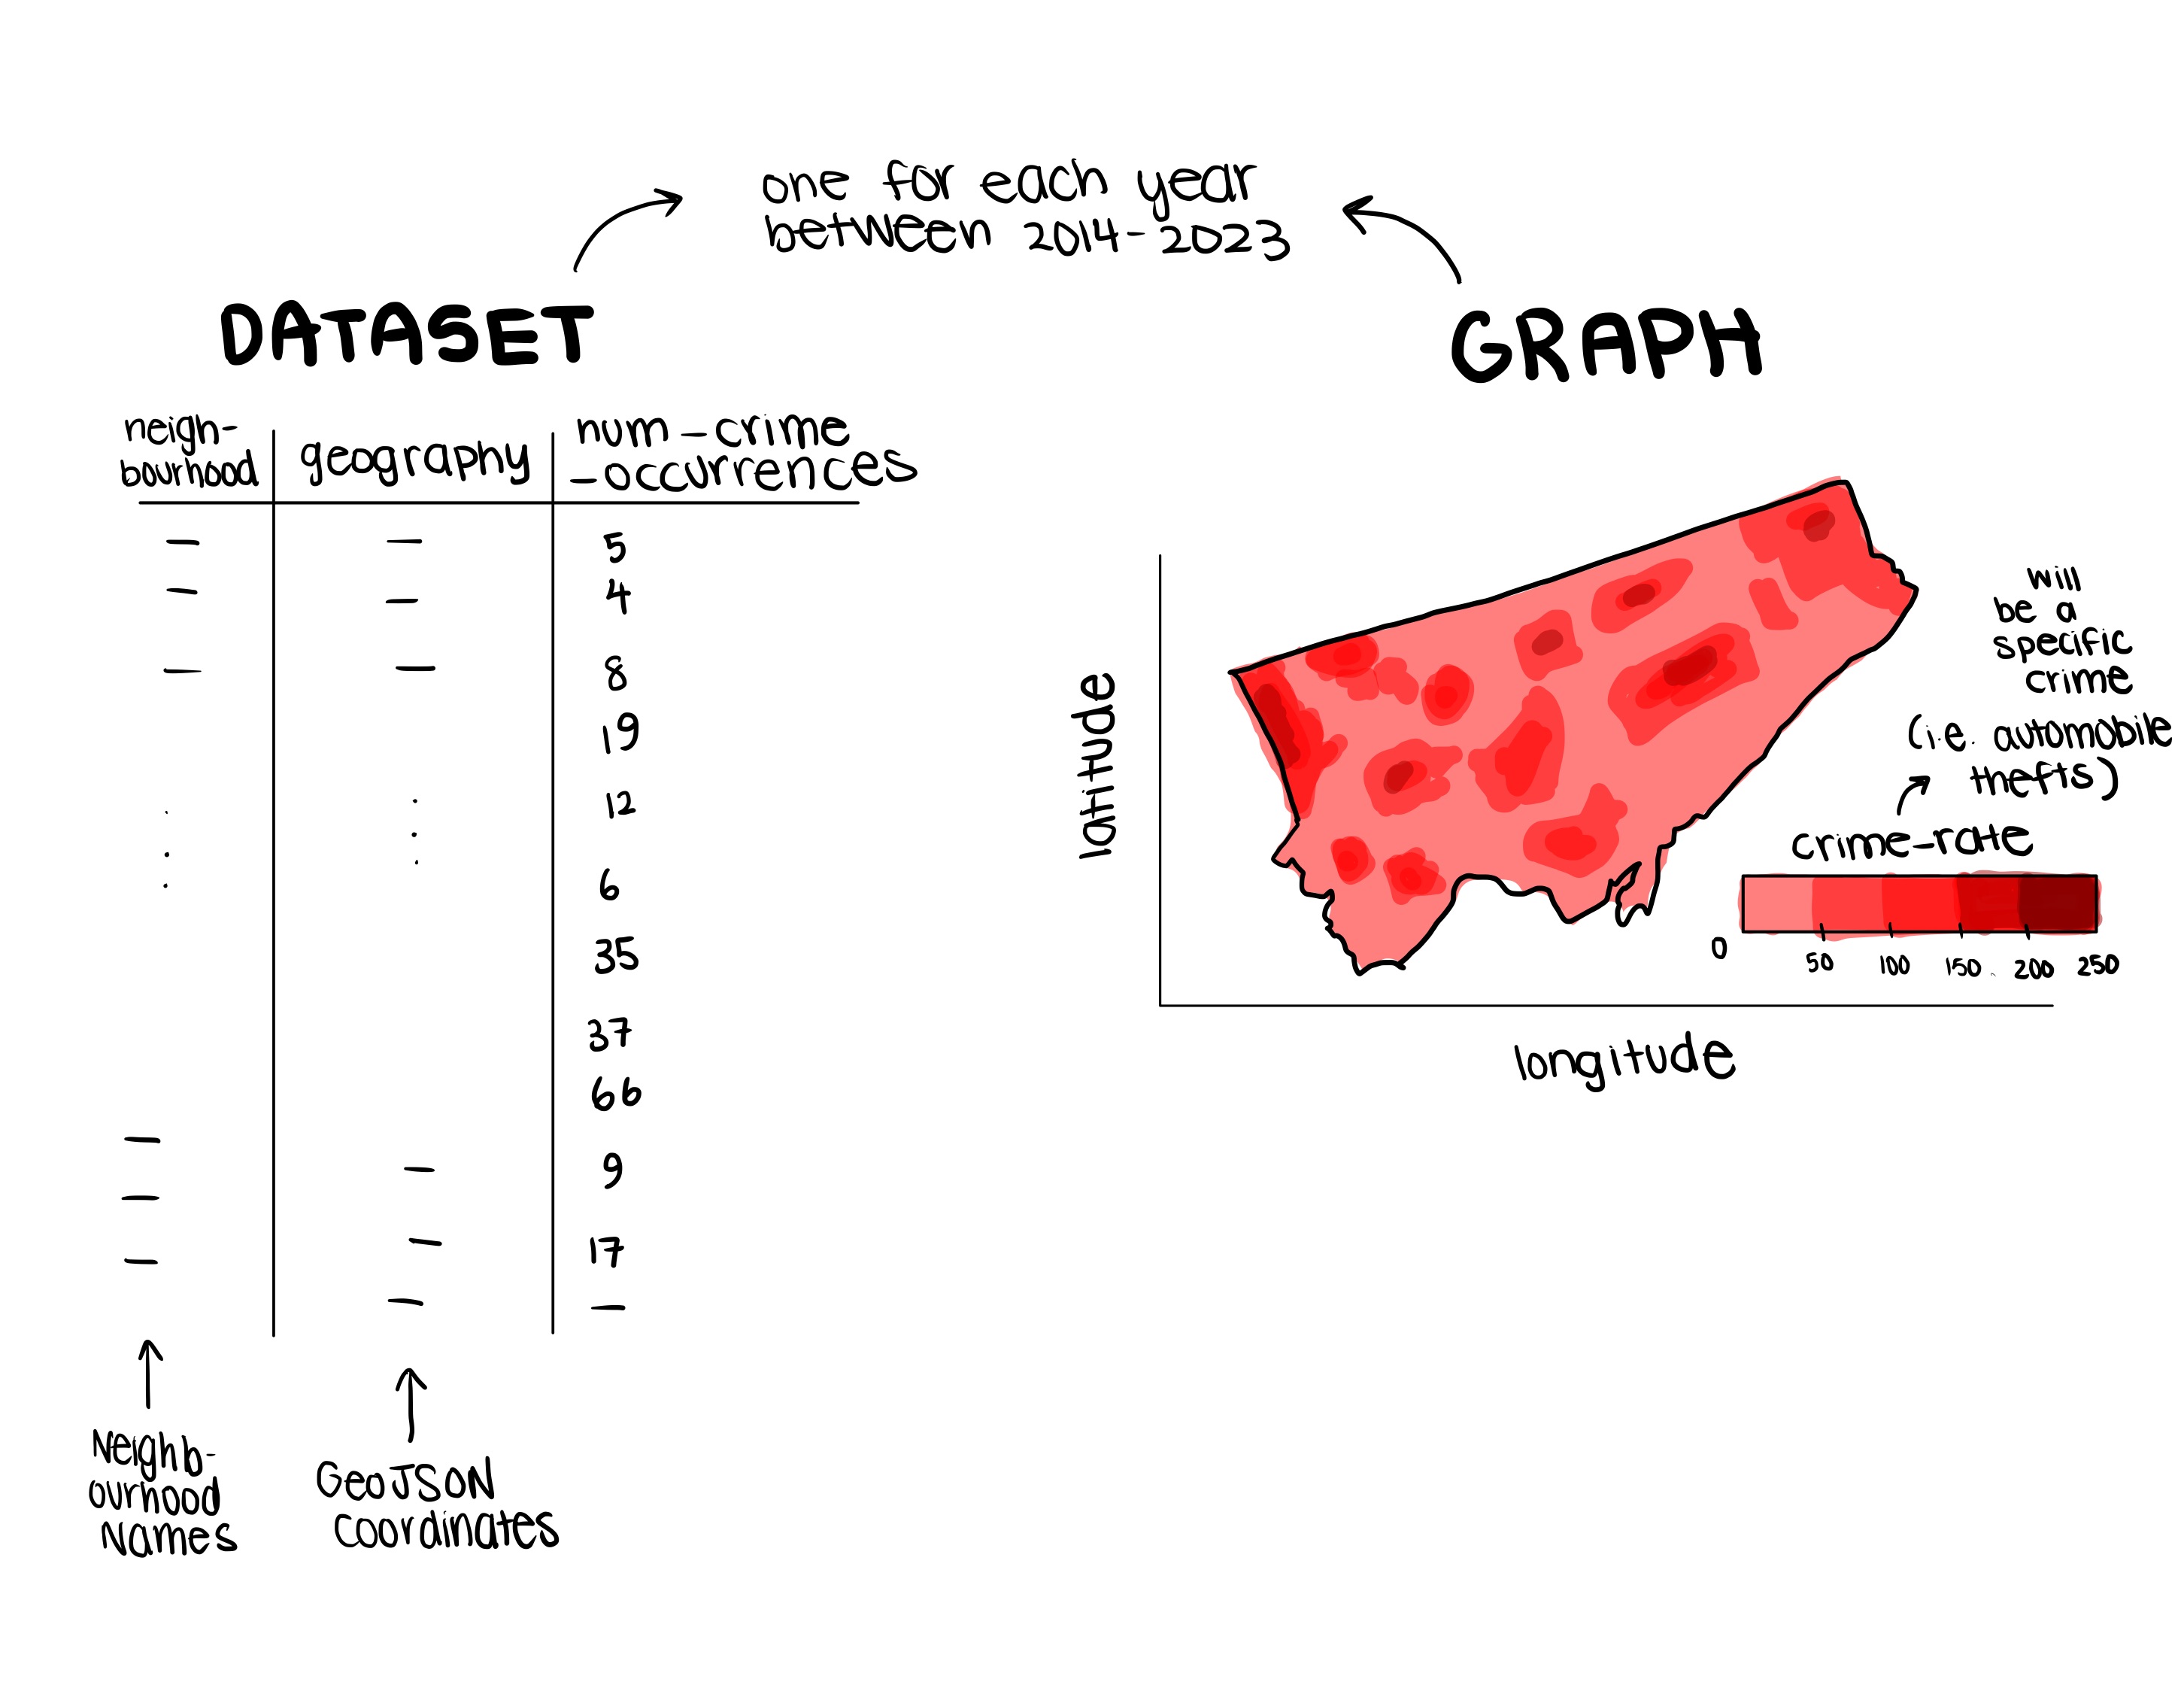 one for each year
between 2014-2023
DATASET
GRAPH
neigh-
bourhood
geography
num_crime
_occurrences
5
4
8
19
12
6
35
37
66
9
17
Neighb-
ourhood
Names
GeoJSON
Coordinates
latitude
longitude
will
be a
specific
crime
(i.e. automobile
thefts)
crime-rate
0 50 100 150 200 250